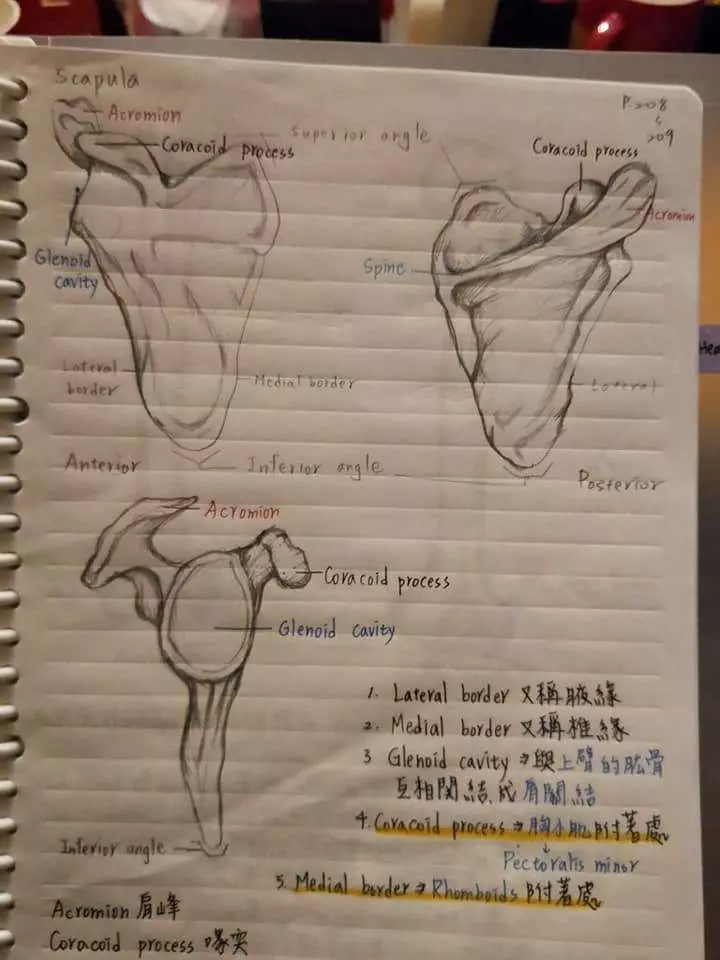 Scapula
P.208
209
Acromion
Coracoid process
Superior angle
Coracoid process
Acromion
Glenoid cavity
Spine
Lateral border
Medial border
Lateral
Anterior
Inferior angle
Posterior
Acromion
Coracoid process
Glenoid cavity
Inferior angle
1. Lateral border 又稱腋緣
2. Medial border 又稱椎緣
3 Glenoid cavity → 與上臂的肱骨
互相関結成肩關結
4. Coracoid process → 胸小肌附著處
Pectoralis minor
5. Medial border → Rhomboids 附著處
Acromion 肩峰
Coracoid process 喙突